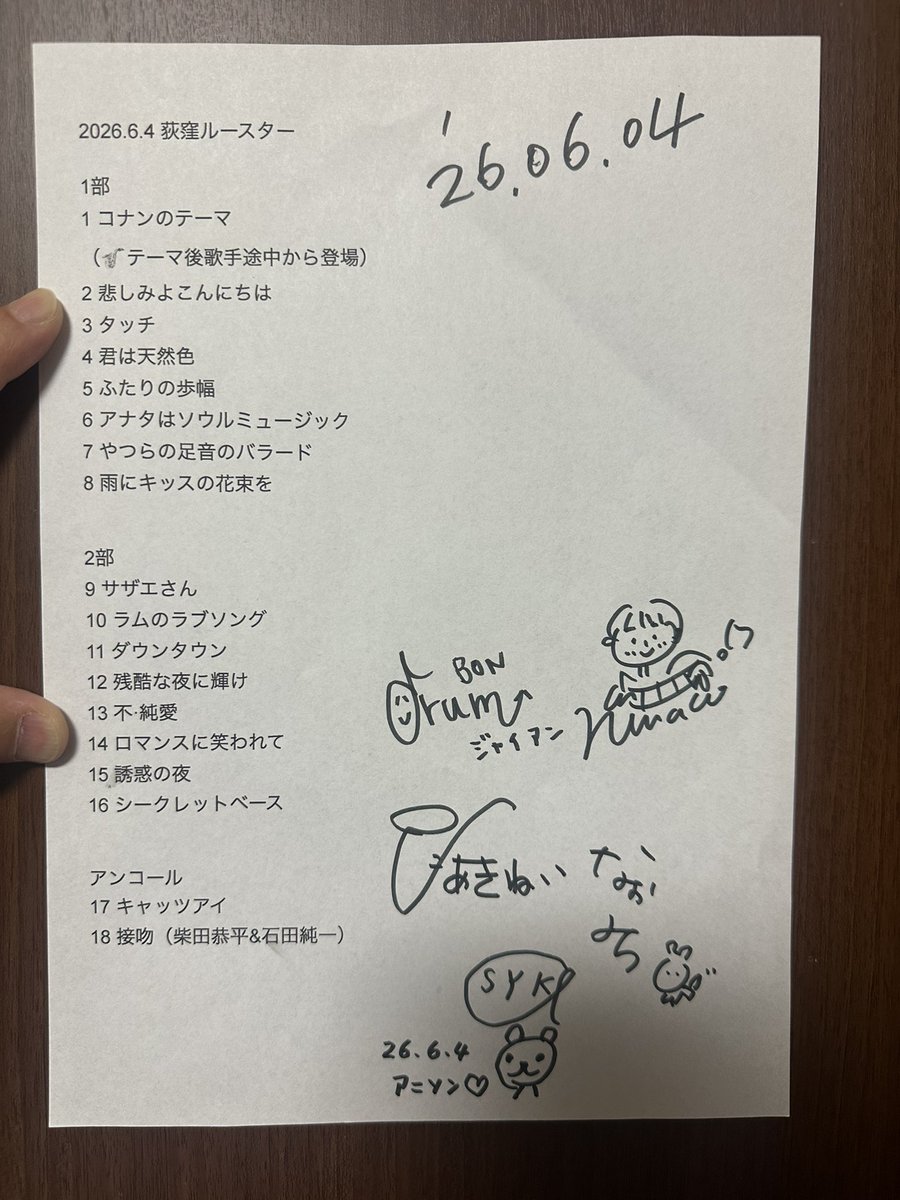 2026.6.4 荻窪ルースター
'26.06.04
1部
1 コナンのテーマ
（🎷テーマ後歌手途中から登場）
2 悲しみよこんにちは
3 タッチ
4 君は天然色
5 ふたりの歩幅
6 アナタはソウルミュージック
7 やつらの足音のバラード
8 雨にキッスの花束を
2部
9 サザエさん
10 ラムのラブソング
11 ダウンタウン
12 残酷な夜に輝け
13 不·純愛
14 ロマンスに笑われて
15 誘惑の夜
16 シークレットベース
アンコール
17 キャッツアイ
18 接吻（柴田恭平&石田純一）
BON
drum
ジャイアン
あきねい
なお
みち
SYK
26.6.4
アニソン♡